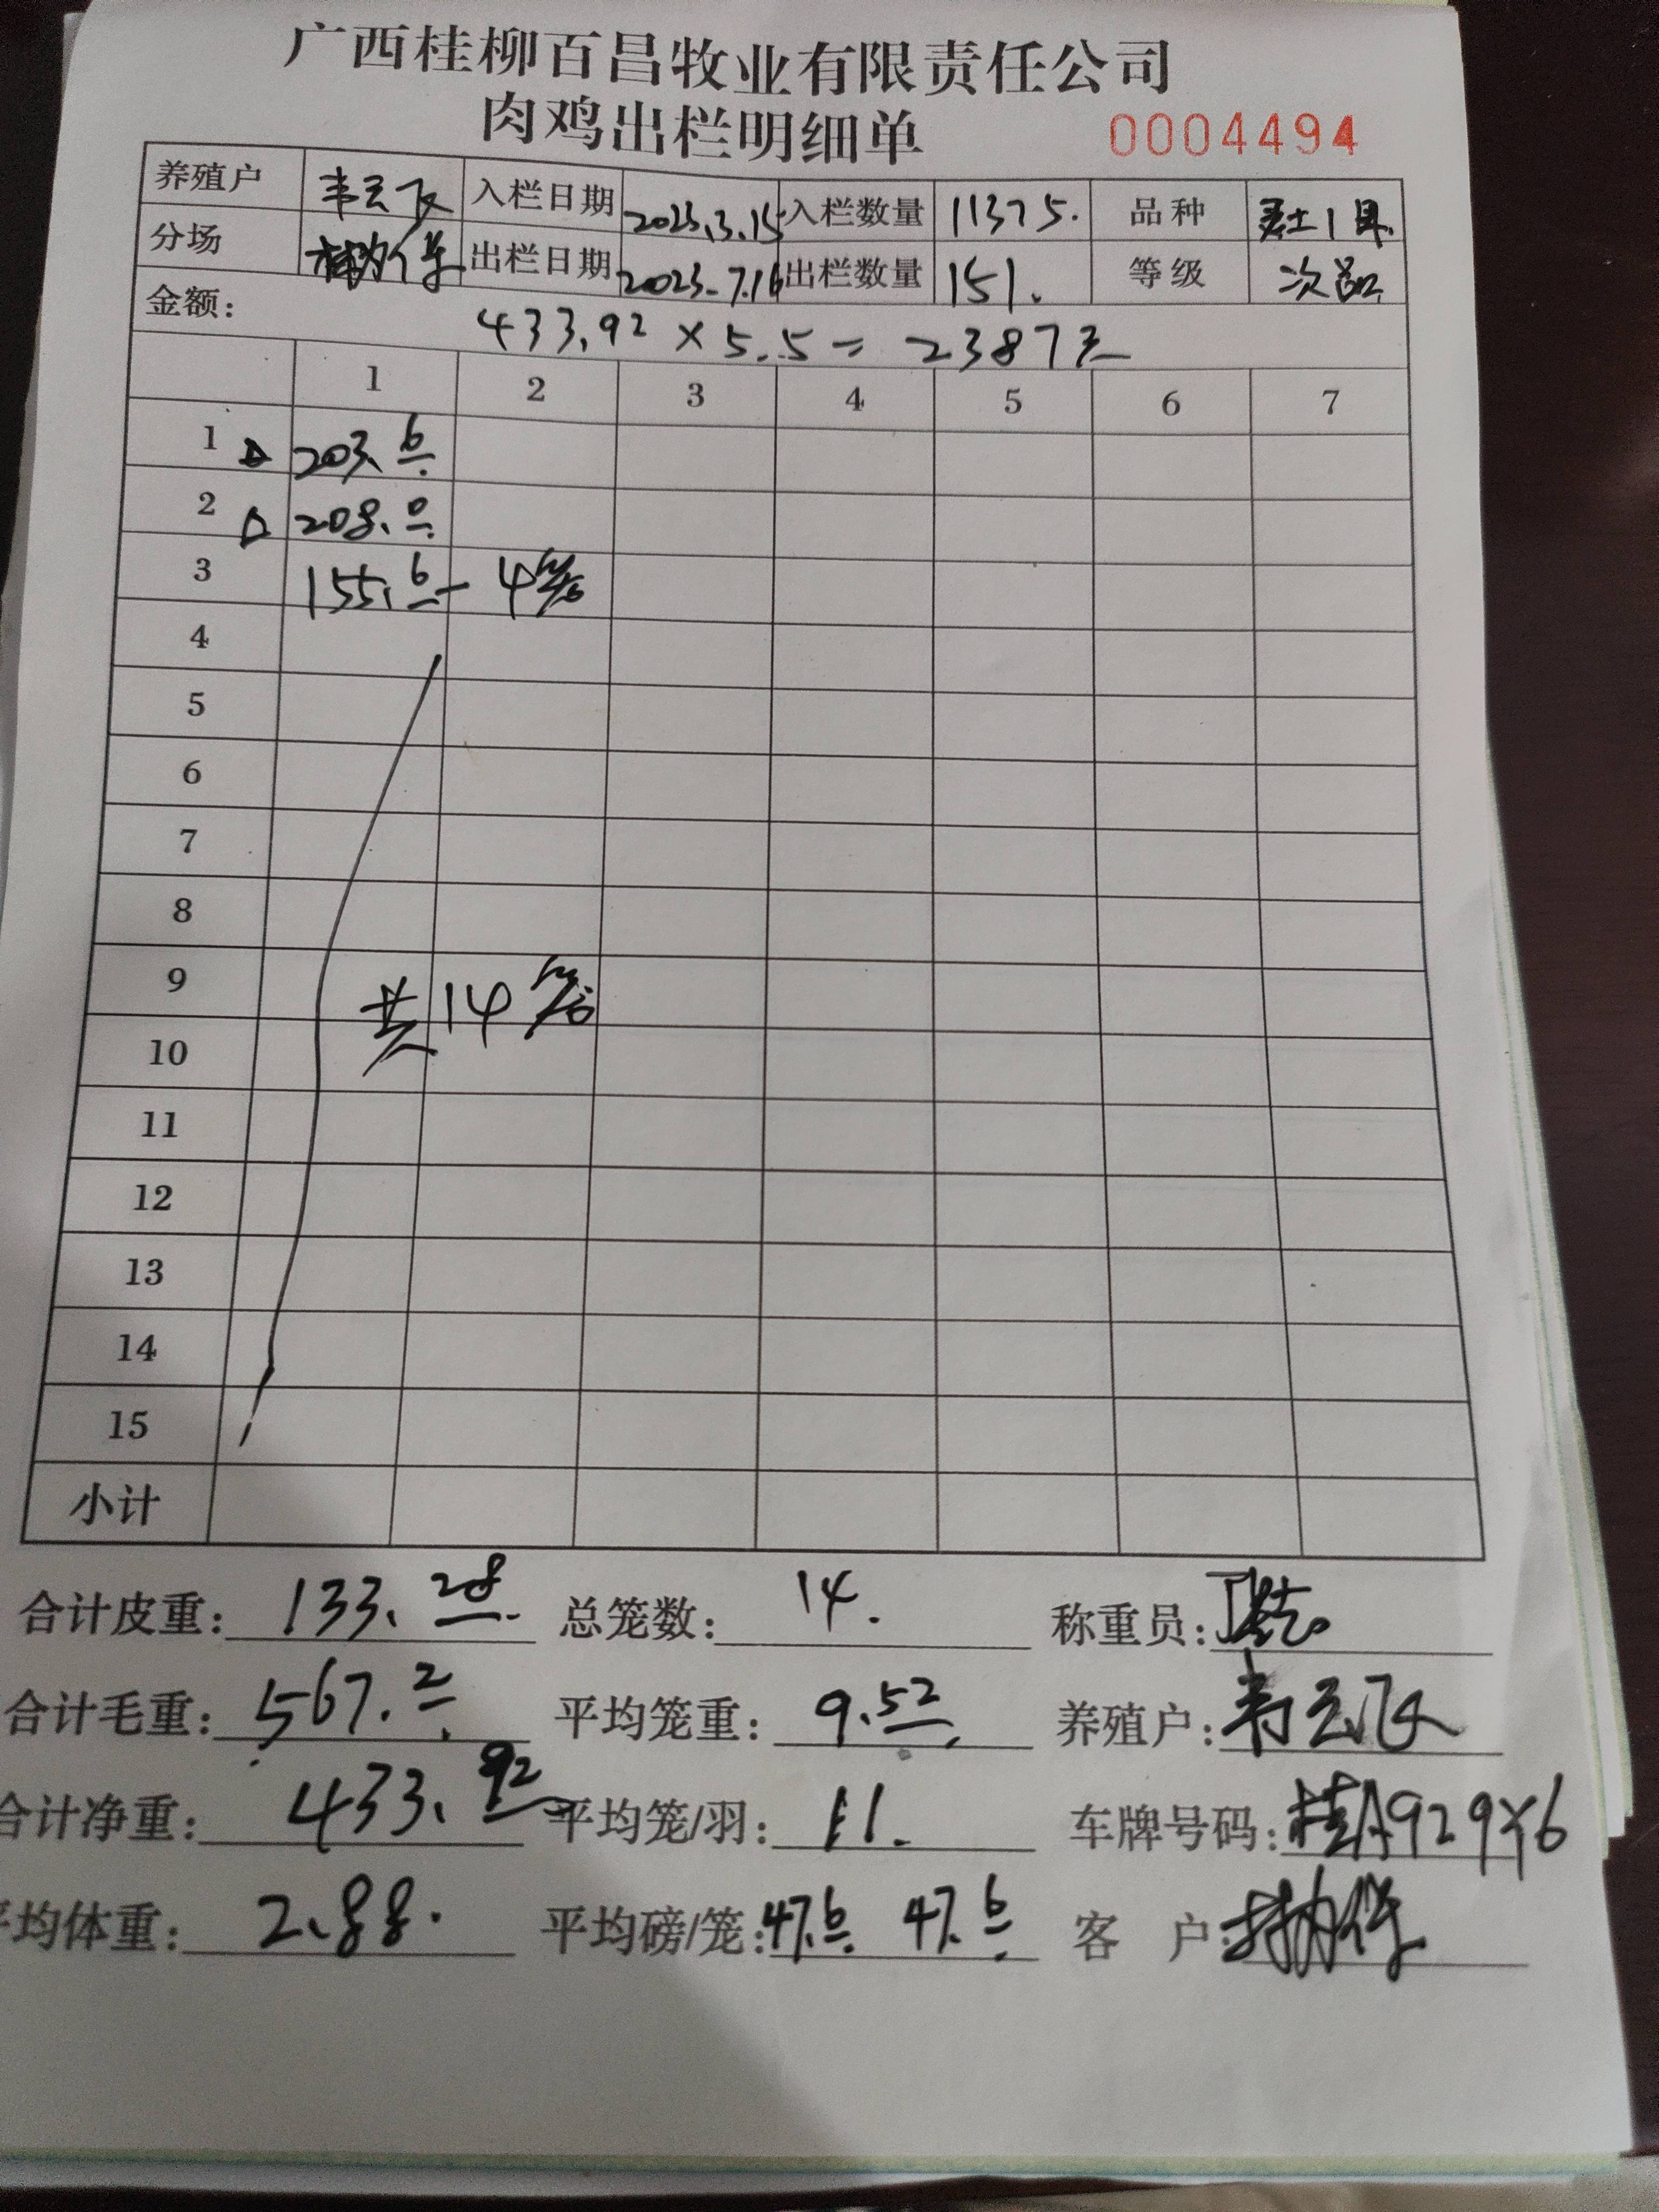 广西桂柳百昌牧业有限责任公司
肉鸡出栏明细单 0004494
养殖户 韦云飞 入栏日期 2023.3.15 入栏数量 11375. 品种
分场 出栏日期 2023.7.16 出栏数量 151. 等级 次品
金额: 433.92 × 5.5 = 2387元
1 2 3 4 5 6 7
1 203.6
2 208.0
3 155.6 - 4笼
4
5
6
7
8
9 共14笼
10
11
12
13
14
15
小计
合计皮重: 133.28 总笼数: 14. 称重员:
合计毛重: 567.2 平均笼重: 9.52 养殖户: 韦云飞
合计净重: 433.92 平均笼/羽: 11. 车牌号码: 桂A929Y6
平均体重: 2.88. 平均磅/笼: 47.6 47.6 客 户: